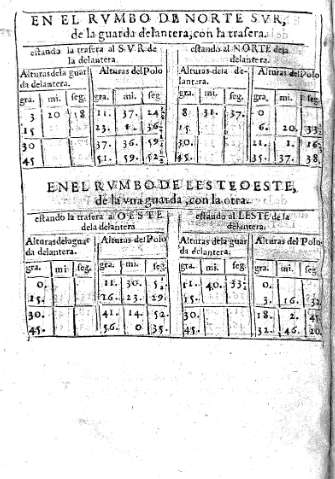 EN EL RVMBO DE NORTE SVR,
de la guarda delantera, con la trasera.
estando la trasera al SVR de la delantera.
Alturas dela guarda delantera. Alturas del Polo
gra. mi. seg. gra. mi. seg.
3 20 18 11. 37. 24
15 23. 36.
30. 37. 36. 59
45 51. 59. 52
estando al NORTE dela delantera.
Alturas dela delantera. Alturas del Polo
gra. mi. seg. gra. mi. seg.
8. 31. 37. 0
15. 6. 20 33
30. 21. 1. 16
45. 35. 37. 38
EN EL RVMBO DE LESTE OESTE,
de la vna guarda, con la otra.
estando la trasera al OESTE dela delantera
Alturas dela guarda delantera. Alturas del Polo
gra. mi. seg. gra. mi. seg.
0. 11. 30. 5
15. 26. 23. 29.
30. 41. 14. 52
45. 56. 0 35.
estando al LESTE de la delantera.
Alturas dela guarda delantera. Alturas del Polo
gra. mi. seg. gra. mi. seg.
11. 40. 33 0.
15. 3. 16. 32
30. 18. 2. 45
45. 32. 46. 20